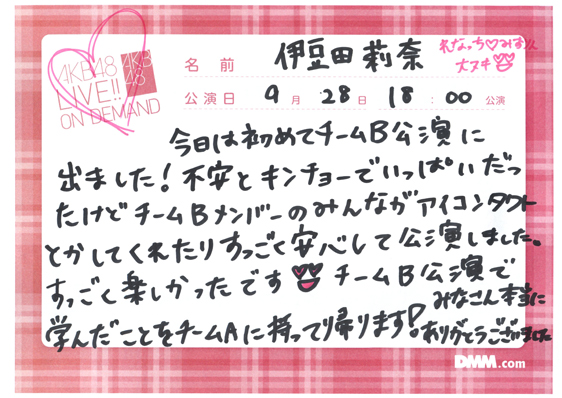 AKB48
LIVE!!
ON DEMAND
AKB
48
名前 伊豆田莉奈
れなっち♡みすりん
大スキ
公演日 9月28日18:00公演
今日は初めてチームB公演に
出ました!不安とキンチョーでいっぱいだっ
たけどチームBメンバーのみんながアイコンタクト
とかしてくれたりすっごく安心して公演しました。
すっごく楽しかったです チームB公演で
学んだことをチームAに持って帰ります!
みなさん本当に
ありがとうございました
DMM.com